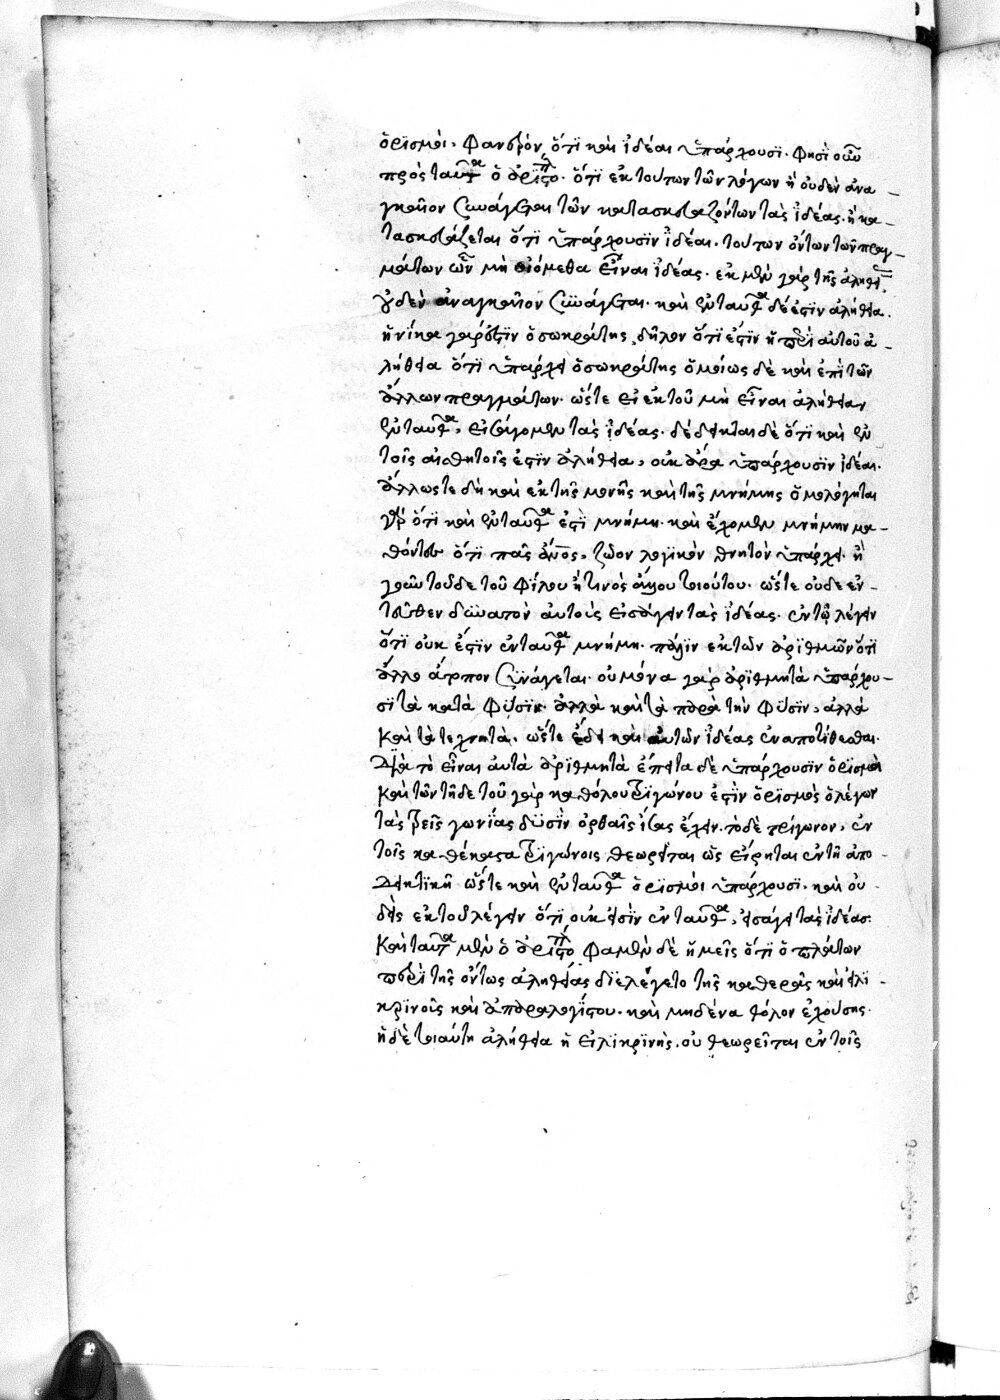 ὁρισμοὶ. φανερὸν, ὅτι καὶ ἰδέαι ὑπάρχουσι. φησὶ οὖν
πρὸς ταῦτα ὁ ἀριστο. ὅτι ἐκ τούτων τῶν λόγων ἢ οὐδὲν ἀνα
γκαῖον συνάγεται τῶν κατασκευαζόντων τὰς ἰδέας. ἢ κα
τασκευάζεται ὅτι ὑπάρχουσιν ἰδέαι. τούτων ὄντων τῶν πραγ
μάτων ὧν μὴ οἰόμεθα εἶναι ἰδέας. ἐκ μὲν γὰρ τῆς ἀληθεί
οὐδὲν ἀναγκαῖον συνάγεται. καὶ ἐνταῦθα δέ ἐστιν ἀλήθεια.
ἡνίκα γάρ ἐστιν ὁ σωκράτης, δῆλον ὅτι ἐστὶν ἡ περὶ αὐτοῦ ἀ
λήθεια ὅτι ὑπάρχει ὁ σωκράτης ὁμοίως δὲ καὶ ἐπὶ τῶν
ἄλλων πραγμάτων. ὥστε εἰ ἐκ τοῦ μὴ εἶναι ἀλήθειαν
ἐνταῦθα, εἰσάγομεν τὰς ἰδέας. δέδεικται δὲ ὅτι καὶ ἐν
τοῖς αἰσθητοῖς ἐστὶν ἀλήθεια, οὐκ ἄρα ὑπάρχουσιν ἰδέαι.
ἄλλωστε δὴ καὶ ἐκ τῆς μονῆς καὶ τῆς μνήμης ὁμολόγηται
γὰρ ὅτι καὶ ἐνταῦθα ἐστὶ μνήμη. καὶ ἔχομεν μνήμην μα
θόντες ὅτι πᾶς ἄνος, ζῶον λογικὸν θνητὸν ὑπάρχει. ἢ
γοῦν τοῦδε τοῦ φίλου ἤ τινος ἄλλου τοιούτου. ὥστε οὐδὲ ἐν
τεῦθεν δυνατὸν αὐτοὺς εἰσάγειν τὰς ἰδέας. ἐν τῷ λέγειν
ὅτι οὐκ ἔστιν ἐνταῦθα μνήμη. πάλιν ἐκ τῶν ἀριθμῶν ὅτι
ἄλλο ἄτοπον συνάγεται. οὐ μόνα γὰρ ἀριθμητὰ ὑπάρχου
σι τὰ κατὰ φύσιν. ἀλλὰ καὶ τὰ παρὰ τὴν φύσιν, ἀλλὰ
καὶ τὰ τεχνητὰ. ὥστε ἔδει καὶ αὐτῶν ἰδέας ἐναποτίθεσθαι.
διὰ τὸ εἶναι αὐτὰ ἀριθμητὰ ἔπειτα δὲ ὑπάρχουσιν ὁρισμοὶ
καὶ τῶν τῇδε τοῦ γὰρ καθόλου τριγώνου ἐστὶν ὁρισμὸς ὁ λέγων
τὰς τρεῖς γωνίας δυσὶν ὀρθαῖς ἴσας ἔχειν. τὸ δὲ τρίγωνον, ἐν
τοῖς καθέκαστα τριγώνοις θεωρεῖται ὡς εἴρηται ἐν τῇ ἀπο
δεικτικῇ ὥστε καὶ ἐνταῦθα ὁρισμοὶ ὑπάρχουσι. καὶ οὐ
δεὶς ἐκ τοῦ λέγειν ὅτι οὐκ εἰσὶν ἐνταῦθα, εἰσάγει τὰς ἰδέας.
καὶ ταῦτα μὲν ὁ ἀριστο φαμὲν δὲ ἡμεῖς ὅτι ὁ πλάτων
περὶ τῆς ὄντως ἀληθείας διελέγετο τῆς καθαρᾶς καὶ εἰλι
κρινοῦς καὶ ἀπαραλογίστου. καὶ μηδένα θόλον ἐχούσης.
ἡ δὲ τοιαύτη ἀλήθεια ἡ εἰλικρινὴς. οὐ θεωρεῖται ἐν τοῖς